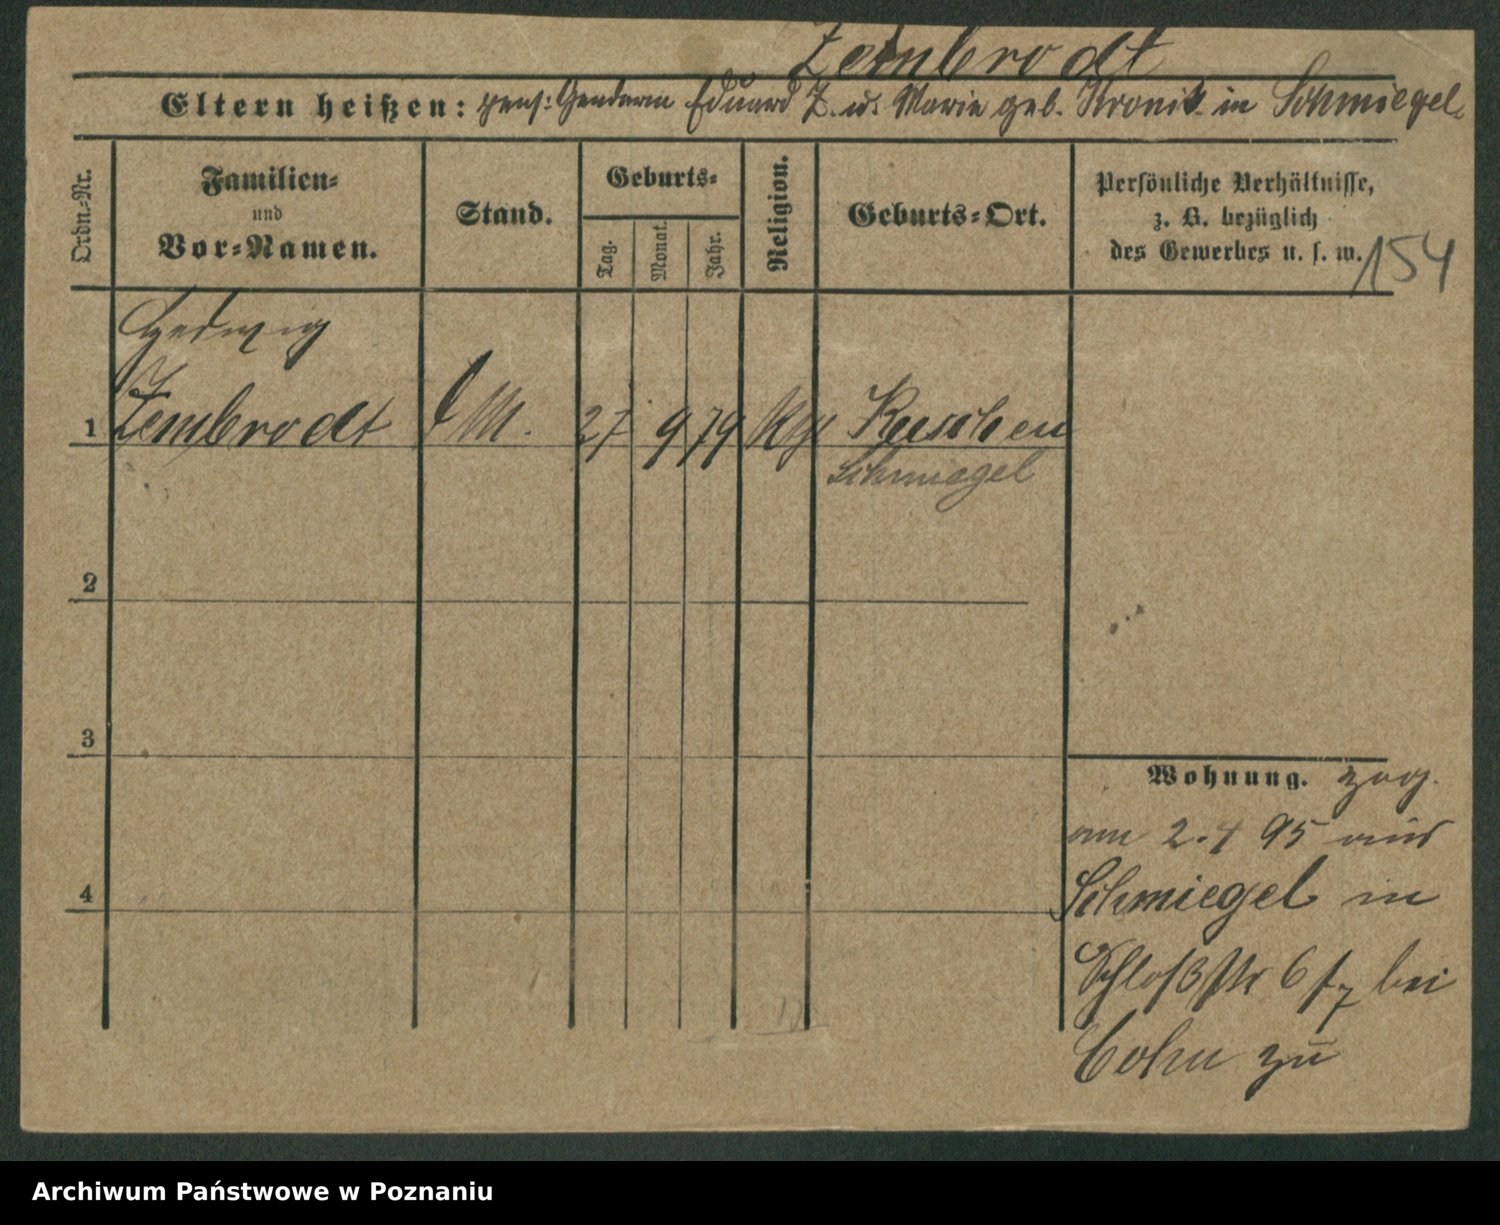 Zembrodt
Eltern heißen: pens: Gendarm Eduard Z. u. Marie geb. Kronik in Schmiegel.
Ordn.-Nr.
Familien-
und
Vor-Namen.
Stand.
Geburts-
Tag.
Monat.
Jahr.
Religion.
Geburts-Ort.
Persönliche Verhältnisse,
z. B. bezüglich
des Gewerbes u. s. w.
154
Hedwig
1 Zembrodt 27 9 79 Kuschen
Schmiegel
2
3
4
Wohnung. zog.
am 2.4 95 aus
Schmiegel in
Schloßstr 6 bei
Cohn zu
Archiwum Państwowe w Poznaniu